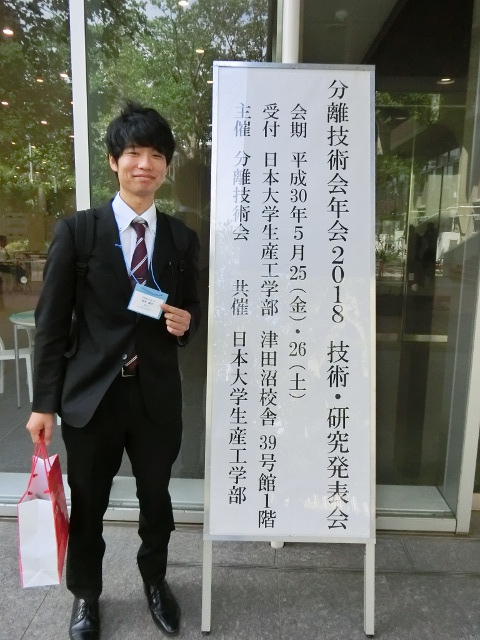 分離技術会年会2018 技術・研究発表会
会期 平成30年5月25(金)・26(土)
受付 日本大学生産工学部 津田沼校舎 39号館1階
主催 分離技術会 共催 日本大学生産工学部